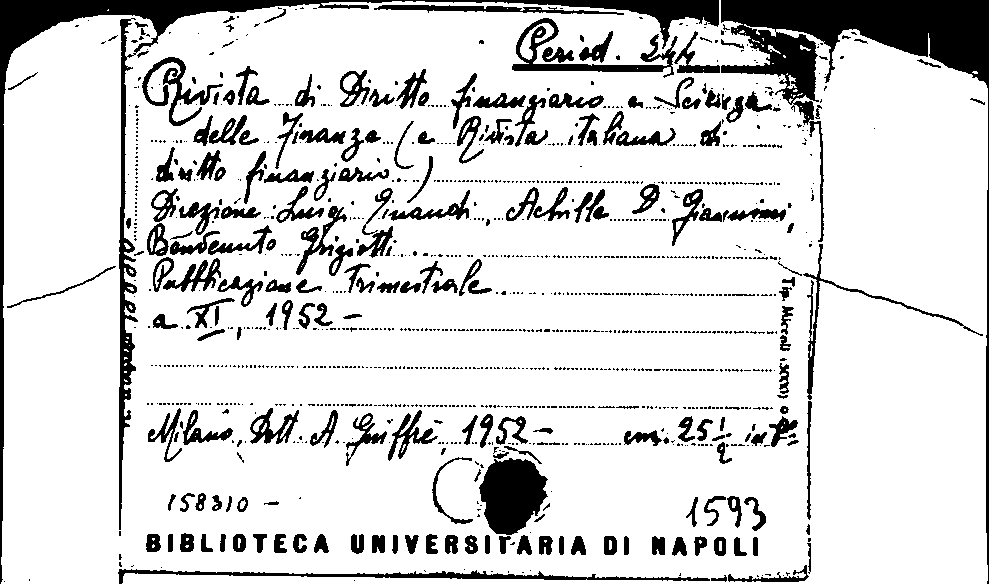 Period. 244
Rivista di Diritto finanziario e Scienza
delle Finanze (e Rivista italiana di
diritto finanziario.)
Direzione: Luigi Einaudi, Achille D. Giannini,
Benvenuto Griziotti.
Pubblicazione Trimestrale.
a XI, 1952 –
Milano, Dott. A. Giuffrè, 1952 – cm. 25 1/2 in 8°
158310 –
1593
BIBLIOTECA UNIVERSITARIA DI NAPOLI
Tip. Miccoli